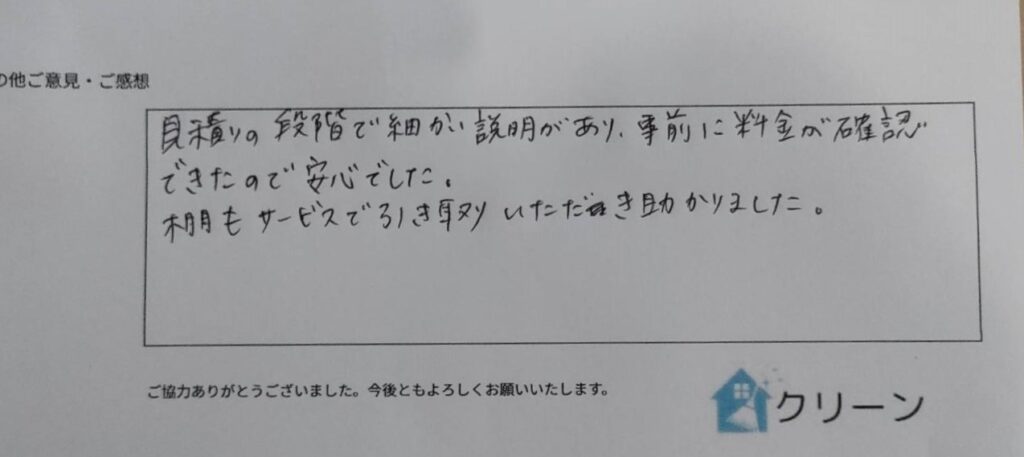 の他ご意見・ご感想
見積りの段階で細かい説明があり、事前に料金が確認
できたので安心でした。
棚もサービスで引き取りいただき助かりました。
ご協力ありがとうございました。今後ともよろしくお願いいたします。
クリーン